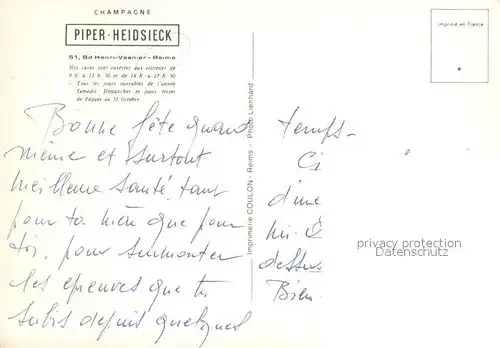 CHAMPAGNE
PIPER-HEIDSIECK
51, Bd Henri-Vasnier - Reims
Nos caves sont ouvertes aux visiteurs de
9 h à 11 h 30 et de 14 h à 17 h 30
- Tous les jours ouvrables de l'année
Samedis, Dimanches et jours fériés
de Pâques au 11 Octobre
Imprimé en France
Imprimerie COULON - Reims - Photo Lienhard
Bonne fête quand
même et surtout
meilleure santé, tant
pour ta mère que pour
toi, pour surmonter
les épreuves que tu
subis depuis quelques
temps-
Ci
d'une
dessus
Bien
privacy protection
Datenschutz